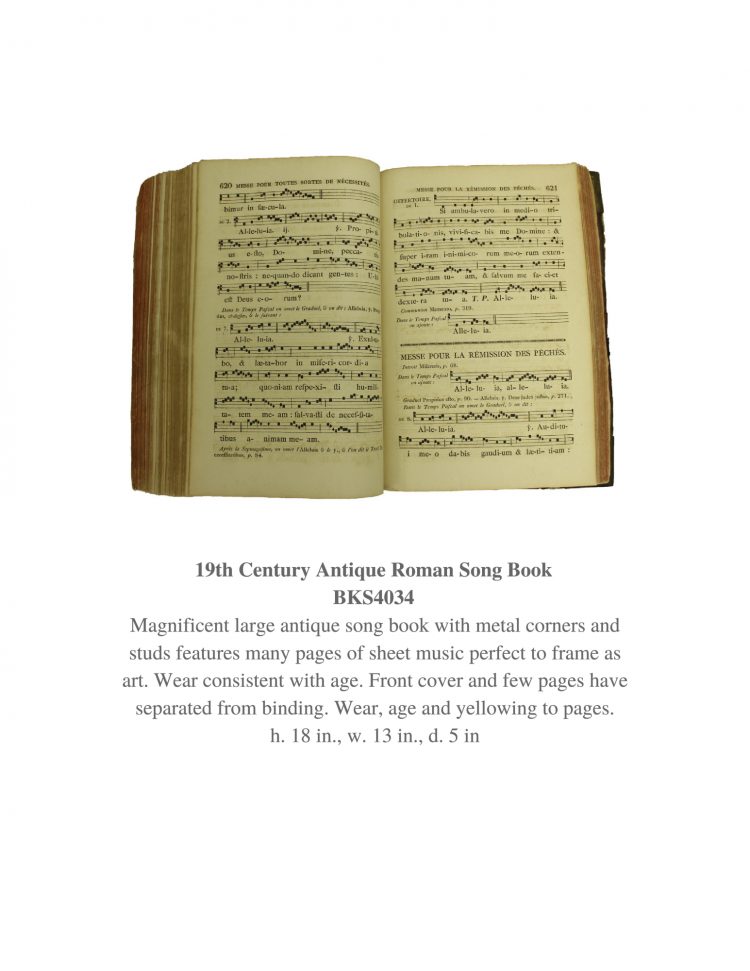 620 MESSE POUR TOUTES SORTES DE NÉCESSITÉS.
bimur in sæcula.
Al-le-lu-ia. ij. ℣. Pro-pi-ti-
us e-sto, Do- mi-ne, pecca-tis
no-stris : ne-quan-do dicant gen-tes : U-bi
est Deus e-o- rum?
Dans le Temps Pascal on omet le Graduel, & on dit : Alleluia.
& le suivant :
DU 7.
Al-le- lu-ia. ℣. Exul-ta-
bo, & læ-ta-bor in mi-se-ri-cor-di-a
tu-a; quo-ni-am re-spe-xi- sti hu-mi-li-
ta- tem me-am : sal-va-sti de ne-ces-si-ta-
tibus a-nimam me-am.
Après la Septuagésime, on omet l'Alleluia & le ℣., & l'on dit le Trait
p. 84.
MESSE POUR LA RÉMISSION DES PÉCHÉS. 621
OFFERTOIRE.
DU 1.
Si am-bu-la-vero in medi-o tri-
bula-ti-o- nis, vivi-fi-ca- bis me Do-mine : &
super i-ram i-ni-mi-co- rum me-o-rum exten-
des ma-num tu-am, & salvum me fa-ci-et
dexte-ra tu- a. T. P. Al-le- lu- ia.
p. 319.
Dans le Temps Pascal
on ajoute :
Alle-lu-ia.
MESSE POUR LA RÉMISSION DES PÉCHÉS.
Introït p. 68.
Dans le Temps Pascal
on ajoute :
Al-le-lu- ia, al-le-lu- ia.
Graduel Propitius esto, p. 90. — Alleluia. ℣. Deus judex justus, p. 271.
Dans le Temps Pascal on omet le Graduel, & on dit :
DU 8.
Al-le-lu-ia. ℣. Au-di-tu-
i me-o da-bis gau-di-um & læ-ti-ti-am :
19th Century Antique Roman Song Book
BKS4034
Magnificent large antique song book with metal corners and
studs features many pages of sheet music perfect to frame as
art. Wear consistent with age. Front cover and few pages have
separated from binding. Wear, age and yellowing to pages.
h. 18 in., w. 13 in., d. 5 in